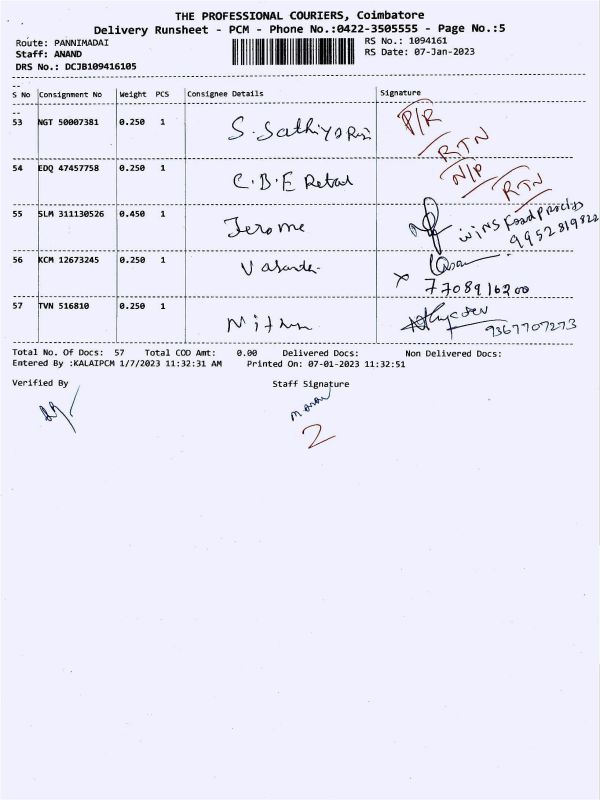 THE PROFESSIONAL COURIERS, Coimbatore
Delivery Runsheet - PCM - Phone No.:0422-3505555 - Page No.:5
Route: PANNIMADAI
RS No.: 1094161
Staff: ANAND
RS Date: 07-Jan-2023
DRS No.: DCJB109416105
S No Consignment No Weight PCS Consignee Details Signature
53 NGT 50007381 0.250 1 S. Sathiya P/R RTN
54 EDQ 47457758 0.250 1 C.B.E Retail N/P RTN
55 SLM 311130526 0.450 1 Jerome WINS Food 9952819822
56 KCM 12673245 0.250 1 X 7708916200
57 TVN 516810 0.250 1 Mithun 9367707273
Total No. Of Docs: 57 Total COD Amt: 0.00 Delivered Docs: Non Delivered Docs:
Entered By :KALAIPCM 1/7/2023 11:32:31 AM Printed On: 07-01-2023 11:32:51
Verified By Staff Signature
2